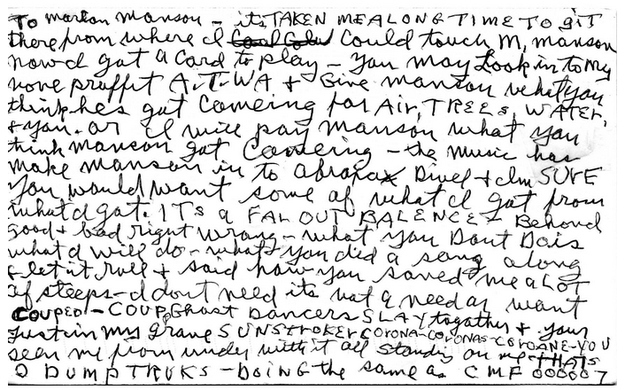 To marlon manson – its TAKEN ME A LONG TIME TO git
there from where I could touch M, manson
now I got a card to play – you may look into my
none proffit A.T.WA & Give manson what you
think hes got comeing for Air, TREES, WATER,
& you. or I will pay manson what you
think manson got comeing – the music has
make manson in to abrapax Divel & Im SURE
you would want some of what I got from
what I got. ITs a FAR OUT BALENCE – Behond
good & bad right wrong – what you Dont Do is
what I will do – what you did a song along
& let it roll & said how you saved me a Lot
of steeps – I dont need it, its not a need or want
COUPED – COUP. Ghost Dancers SLAY together & your
just in my grave SUNSTROKER CORONA-CORONAS-COROANE-YOU
seen me from under with it all standing on me THATS
O DUMP TRUKS – DOING the same as CMF 000007